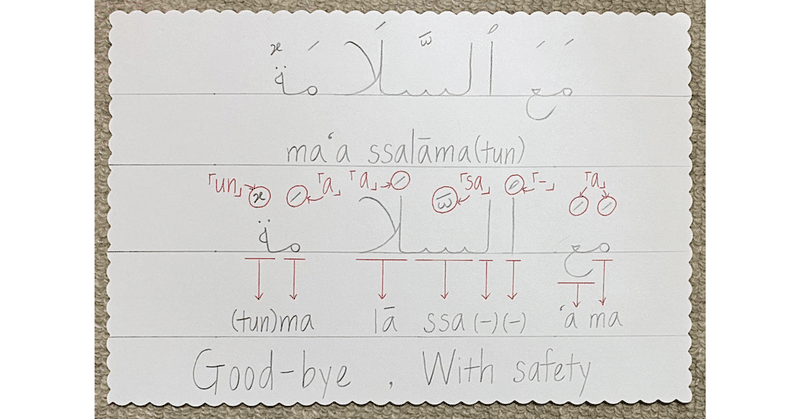 مَعَ ٱلسَّلَامَةٌ
ma‘a ssalāma(tun)
「un」 「a」 「a」 「sa」 「-」 「a」
مع السلامة
(tun)ma lā ssa (-)(-) ‘a ma
Good-bye , With safety